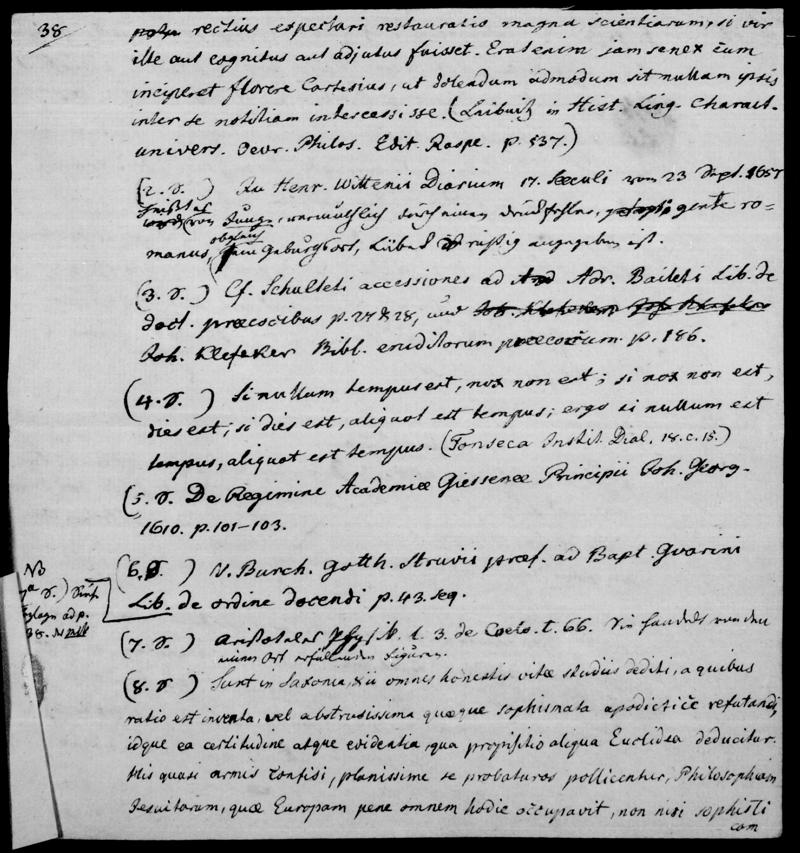 38
rectius expectari restauratio magna scientiarum, si vir
ille aut cognitus aut adjutus fuisset. Erat enim jam senex cum
inciperet florere Cartesius, ut dolendum admodum sit nullam ipsis
inter se notitiam intercessisse. (Leibnitz in Hist. Ling. Charact.
univers. Oevr. Philos. Edit. Raspe. p. 537.)
(2. S. ) Zu Henr. Wittenii Diarium 17. Sæculi vom 23 Sept. 1657
von Junge, vermuthlich durch einen Druckfehler, gente ro-
obgleich
manus, sein Geburtsort, Lübeck richtig angegeben ist.
(3. S. ) Cf. Schulteti accessiones ad Adr. Baileti Lib. de
doct. præcocibus p. 27 & 28, und
Joh. Klefeker Bibl. eruditorum præcocium. p. 186.
(4. S. ) Si nullum tempus est, nox non est; si nox non est,
dies est; si dies est, aliquot est tempus; ergo si nullum est
tempus, aliquot est tempus. (Fonseca Instit. Dial. 18. c. 15.)
(5. S. De Regimine Academiæ Giessenæ Principii Joh. Georg.
1610. p. 101–103.
(6. S. ) V. Burch. Gotth. Struvii præf. ad Bapt. Gvarini
Lib. de ordine docendi p. 43. seq.
NB
S.)
ad p.
38.
(7. S. ) Aristoteles Physik. l. 3. de Coelo. t. 66. Sie handelt von den
einen Ort erfüllenden Figuren.
(8. S ) Sunt in Saxonia, xii omnes honestis vitæ studiis dediti, a quibus
ratio est inventa, vel abstrusissima quæque sophismata apodictice refutandi,
idque ea certitudine atque evidentia, qua propositio aliqua Euclidea deducitur.
His quasi armis confisi, planissime se probaturos pollicentur, Philosophiam
Jesuitarum, quæ Europam pene omnem hodie occupavit, non nisi sophisti
com